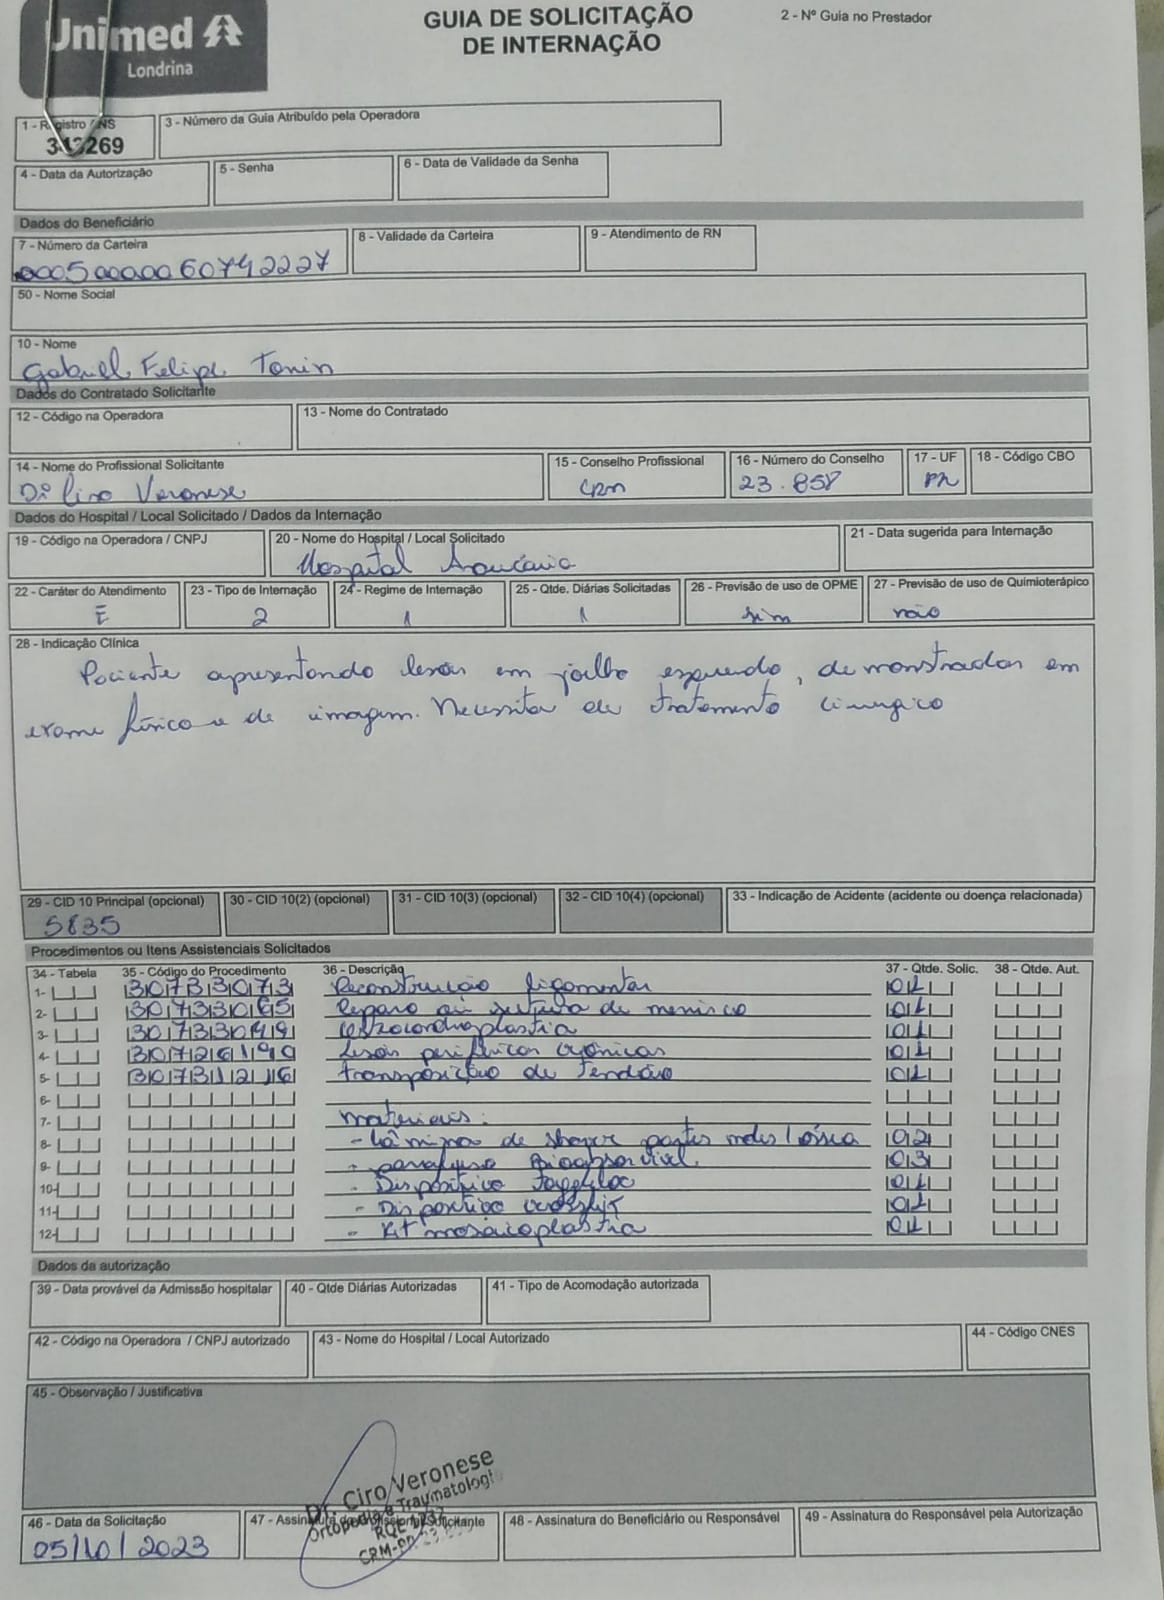 Unimed
Londrina
GUIA DE SOLICITAÇÃO
DE INTERNAÇÃO
2 - Nº Guia no Prestador
1 - Registro ANS
269
3 - Número da Guia Atribuído pela Operadora
4 - Data da Autorização
5 - Senha
6 - Data de Validade da Senha
Dados do Beneficiário
7 - Número da Carteira
8 - Validade da Carteira
9 - Atendimento de RN
50 - Nome Social
10 - Nome
Gabriel Felipe Tonin
Dados do Contratado Solicitante
12 - Código na Operadora
13 - Nome do Contratado
14 - Nome do Profissional Solicitante
15 - Conselho Profissional
16 - Número do Conselho
17 - UF
18 - Código CBO
Veronese
CRM
23.858
PR
Dados do Hospital / Local Solicitado / Dados da Internação
19 - Código na Operadora / CNPJ
20 - Nome do Hospital / Local Solicitado
21 - Data sugerida para Internação
Hospital Araucária
22 - Caráter do Atendimento
23 - Tipo de Internação
24 - Regime de Internação
25 - Qtde. Diárias Solicitadas
26 - Previsão de uso de OPME
27 - Previsão de uso de Quimioterápico
E
2
1
1
sim
não
28 - Indicação Clínica
Paciente apresentando lesões em joelho esquerdo, demonstradas em
exame físico e de imagem. Necessita de tratamento cirurgico
29 - CID 10 Principal (opcional)
30 - CID 10(2) (opcional)
31 - CID 10(3) (opcional)
32 - CID 10(4) (opcional)
33 - Indicação de Acidente (acidente ou doença relacionada)
S835
Procedimentos ou Itens Assistenciais Solicitados
34 - Tabela
35 - Código do Procedimento
36 - Descrição
37 - Qtde. Solic.
38 - Qtde. Aut.
1- 30733073 Reconstrução ligamentar 01
2- 30733065 Reparo ou sutura de menisco 01
3- 30733049 01
4- 30726190 Lesões periféricas crônicas 01
5- 30731216 Transposição de Tendão 01
6-
7- Materiais:
8- - Lâmina de shaver partes moles / óssea 02
9- - parafuso Bioabsorvivel 03
10- - Dispositivo 01
11- - Dispositivo 01
12- - Kit mosaicoplastia 01
Dados da autorização
39 - Data provável da Admissão hospitalar
40 - Qtde Diárias Autorizadas
41 - Tipo de Acomodação autorizada
42 - Código na Operadora / CNPJ autorizado
43 - Nome do Hospital / Local Autorizado
44 - Código CNES
45 - Observação / Justificativa
Dr. Ciro Veronese
Ortopedia e Traumatologi
RQE
CRM-PR 23.
46 - Data da Solicitação
47 - Assinatura do Profissional Solicitante
48 - Assinatura do Beneficiário ou Responsável
49 - Assinatura do Responsável pela Autorização
05/10/2023